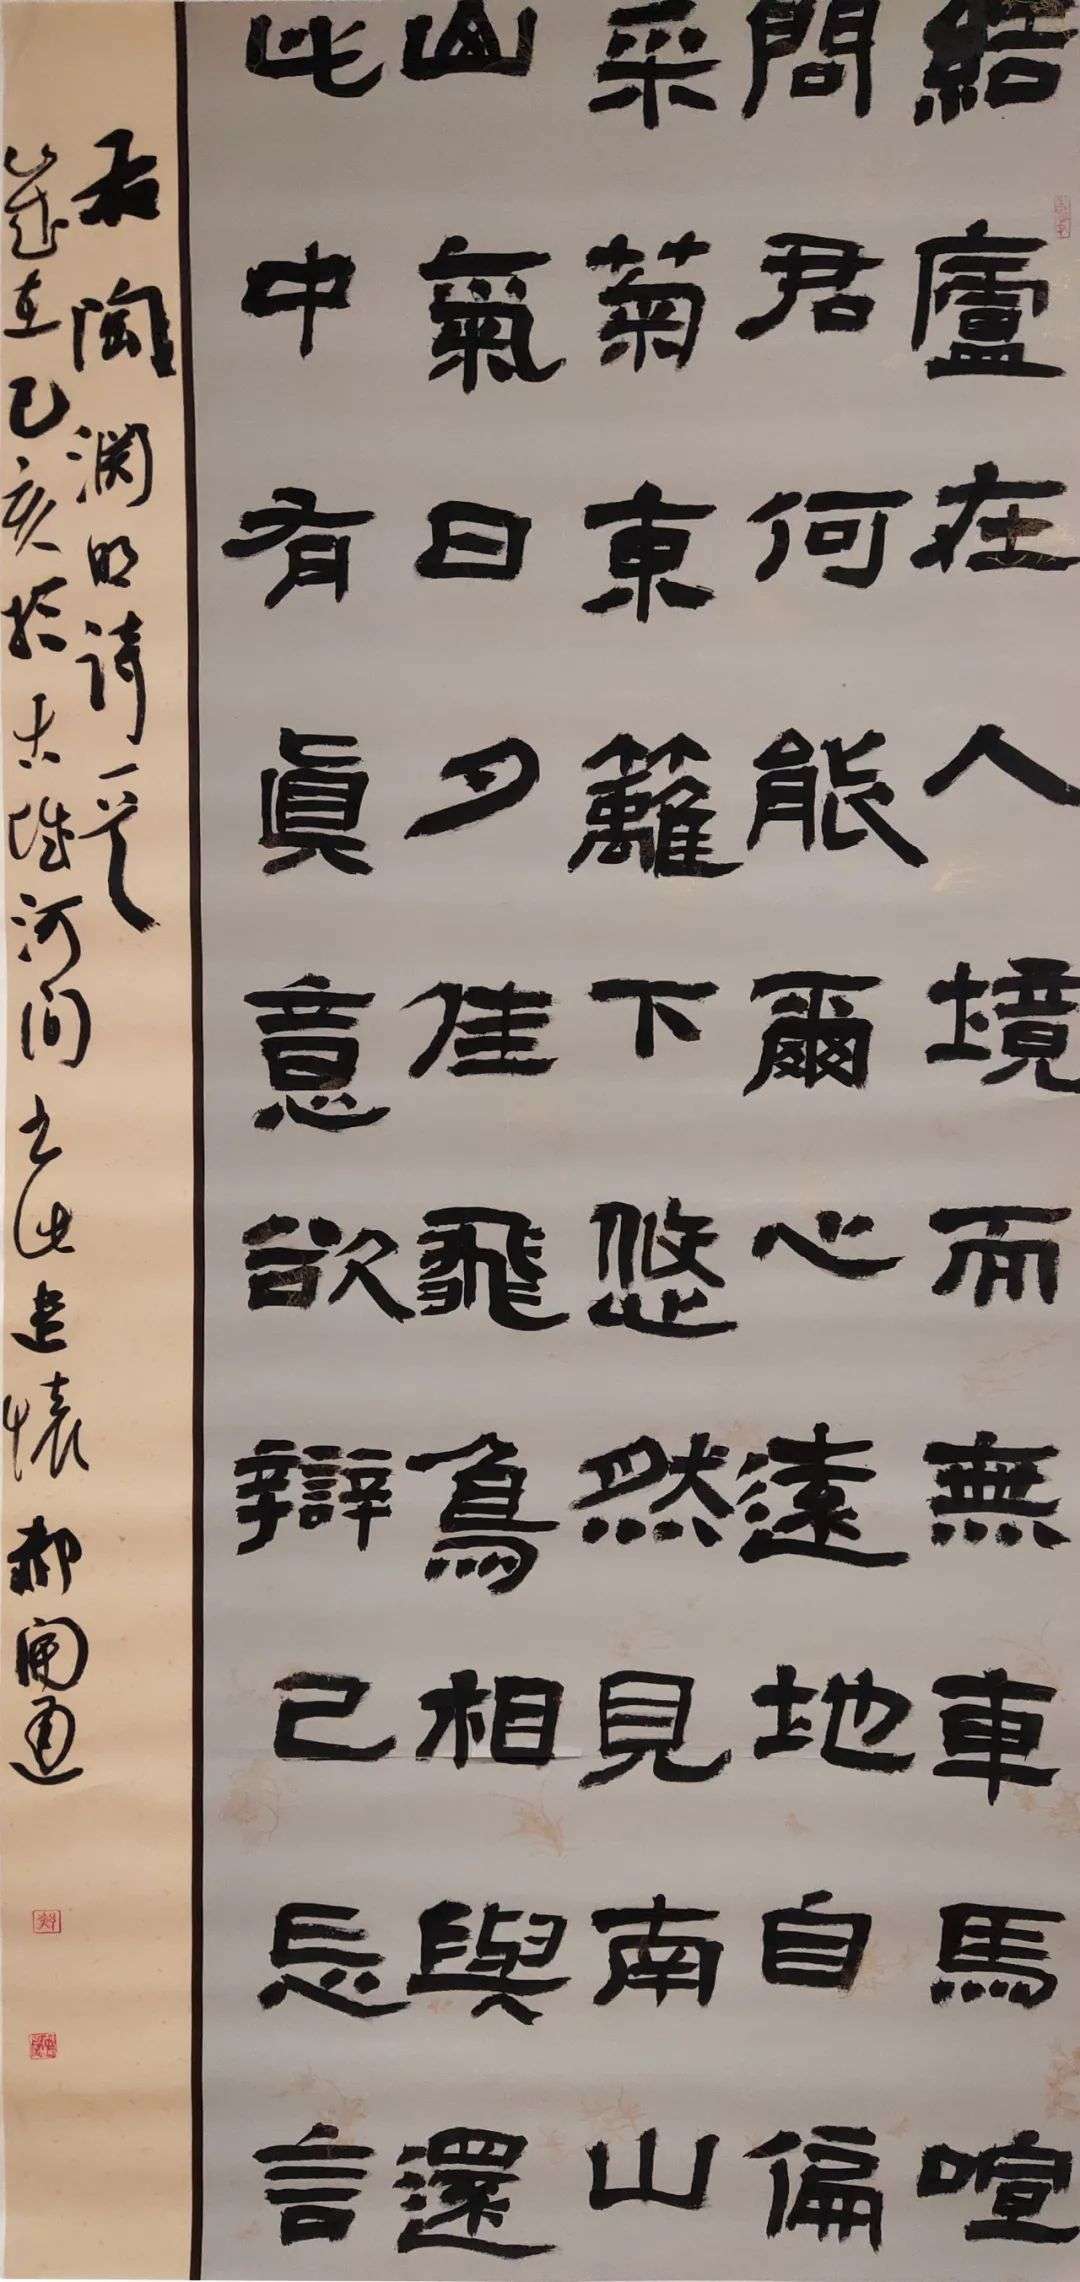 結廬在人境而無車馬喧
問君何能爾心遠地自偏
采菊東籬下悠然見南山
山氣日夕佳飛鳥相與還
此中有眞意欲辯已忘言
右陶渊明詩一首
歲在己亥於古河间懷郝開通